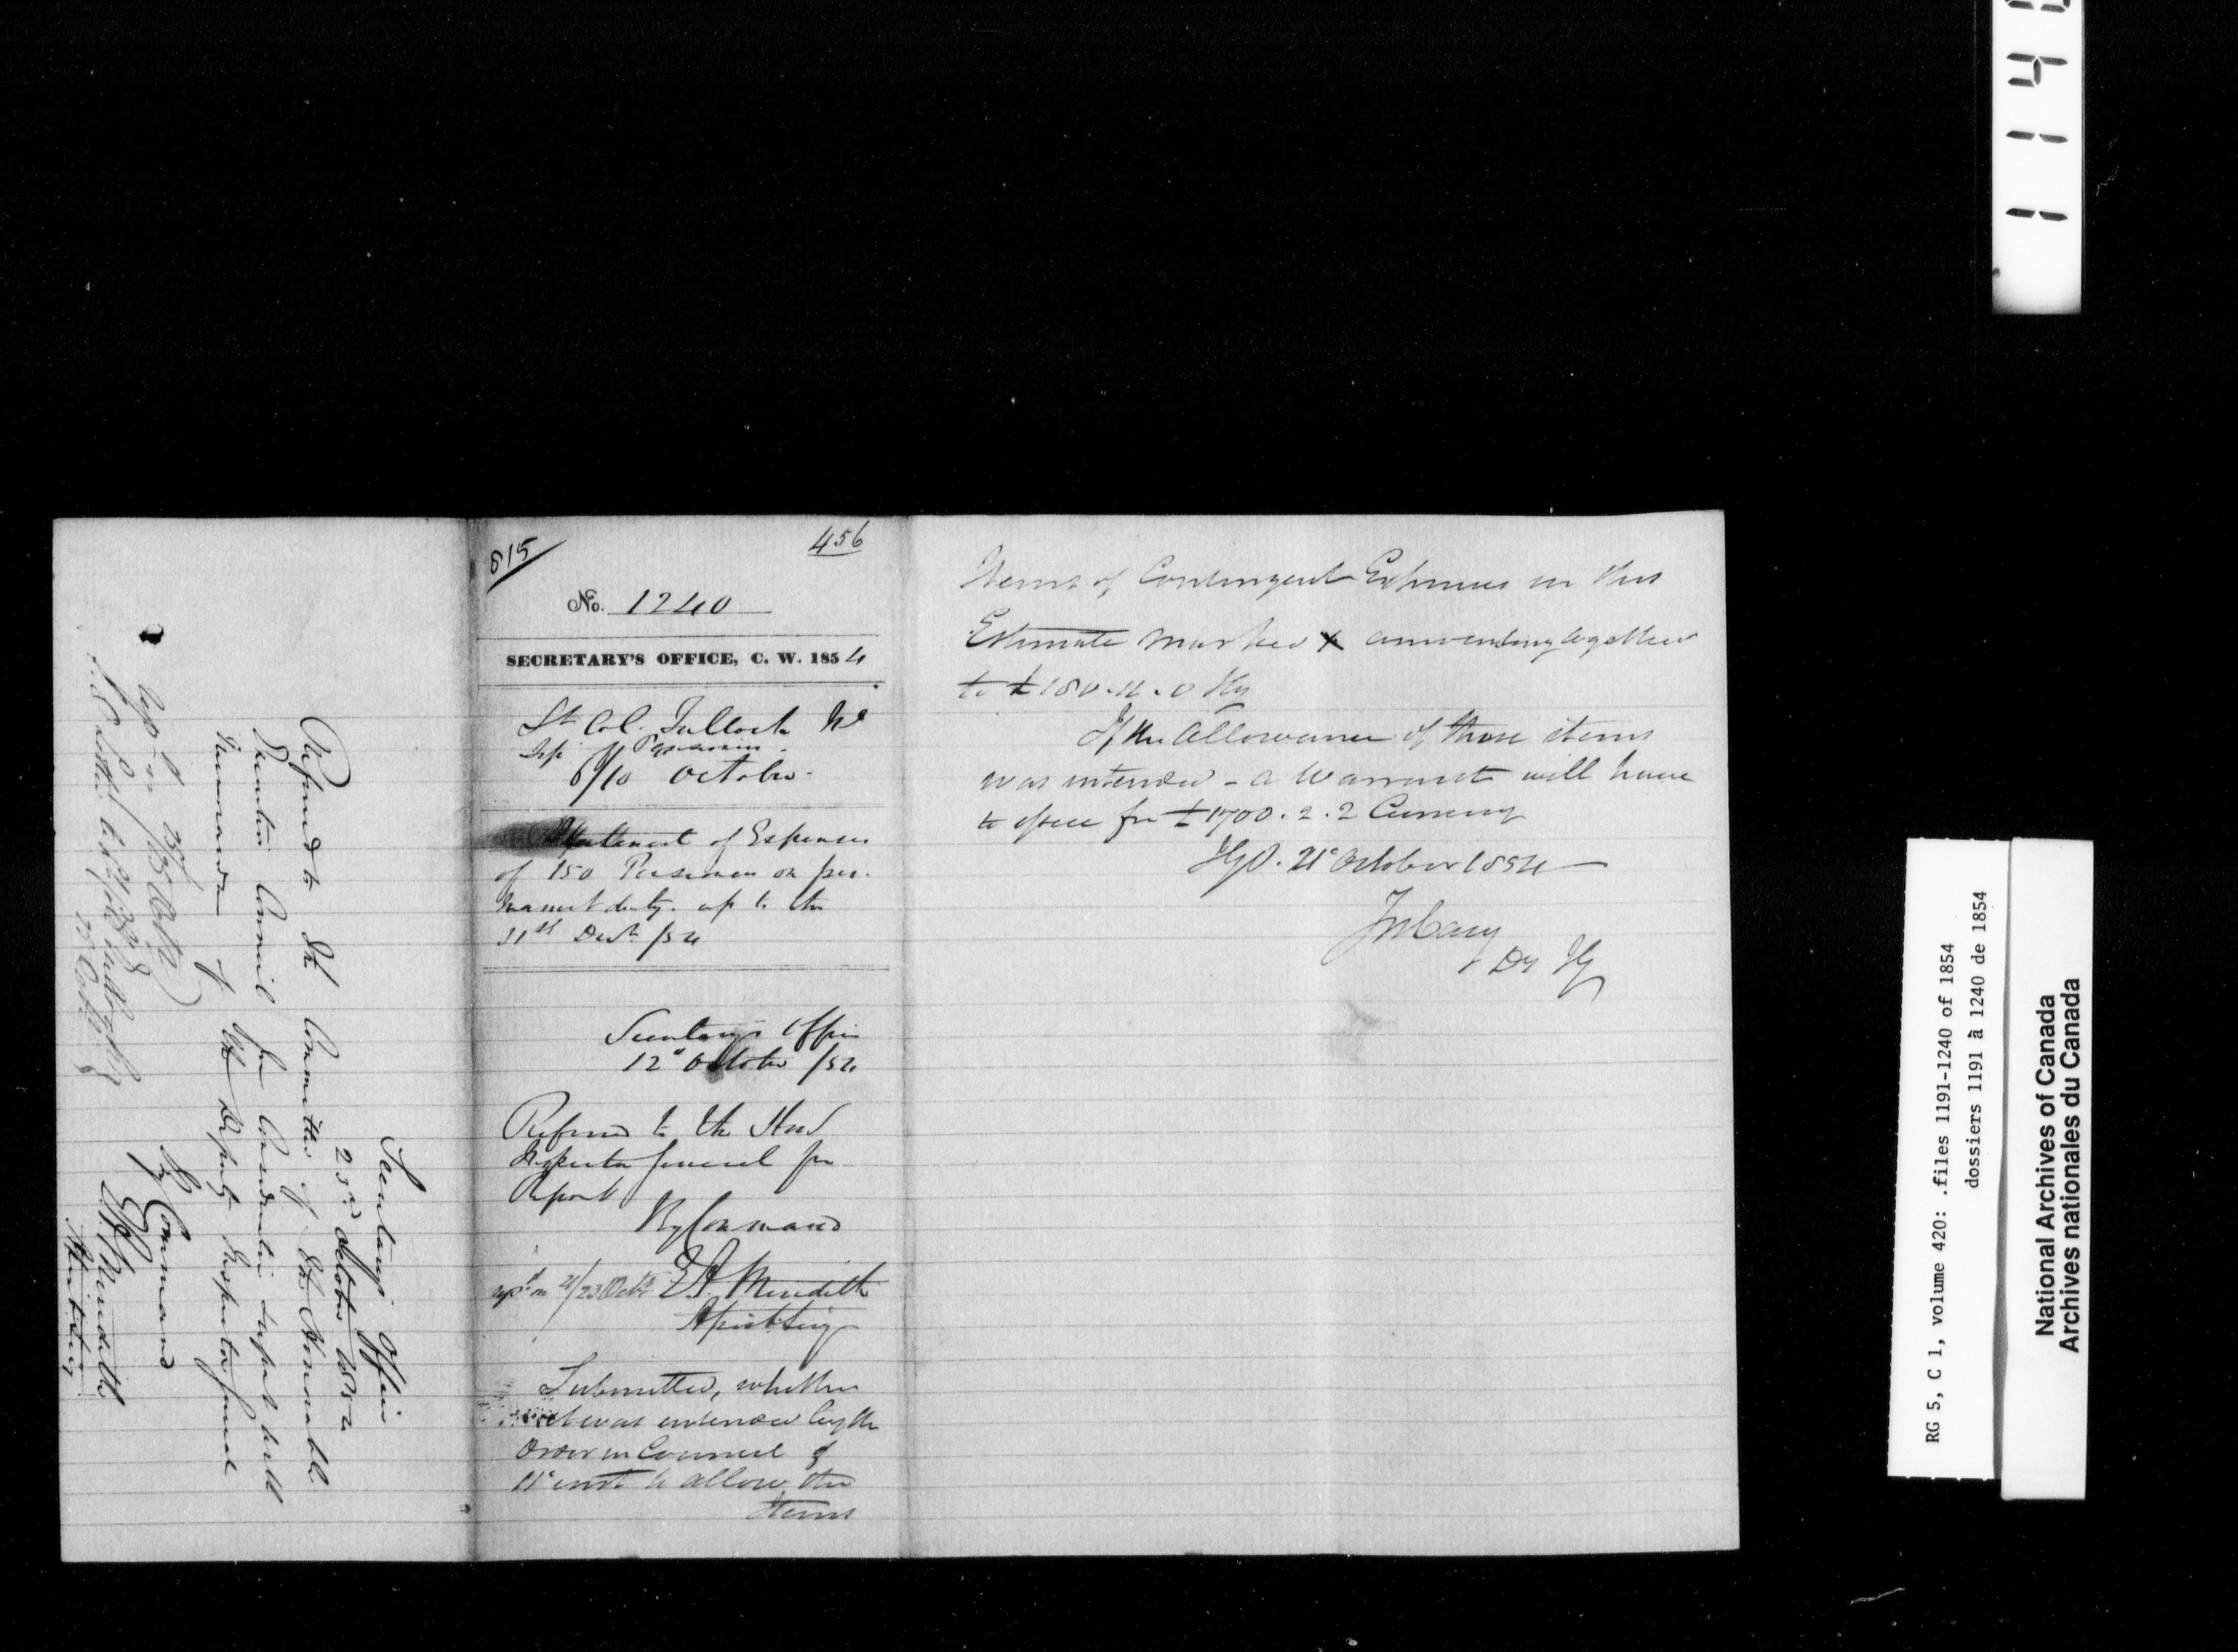 815
456
No. 1240
SECRETARY'S OFFICE, C. W. 1854
Lt Col. Tulloch
6/10 October
Statement of Expenses
of 150 Pensioners on per-
manent duty up to the
31st Decr /54
Secretary's Office
12th October /54
Referred to the Hon
Inspector General for
Report
By Command
E.A. Meredith
Asst Secy
Submitted, whether
it was intended by the
Order in Council of
11th inst to allow the
Items
Items of Contingent Expenses in this
Estimate marked x amounting together
to £180.11.0
If the Allowance of those items
was intended - a Warrant will have
to issue for £1700.2.2 Currency
IGO. 21st October 1854
Jn Cary
Dy IG
Secretary's Office
23rd October 1854
Referred to the Committee of the Honorable
Executive Council for Consideration & report with
Memorandum of the Deputy Inspector General
By Command
E.A. Meredith
Asst Secy
RG 5, C 1, volume 420: .files 1191-1240 of 1854
dossiers 1191 à 1240 de 1854
National Archives of Canada
Archives nationales du Canada